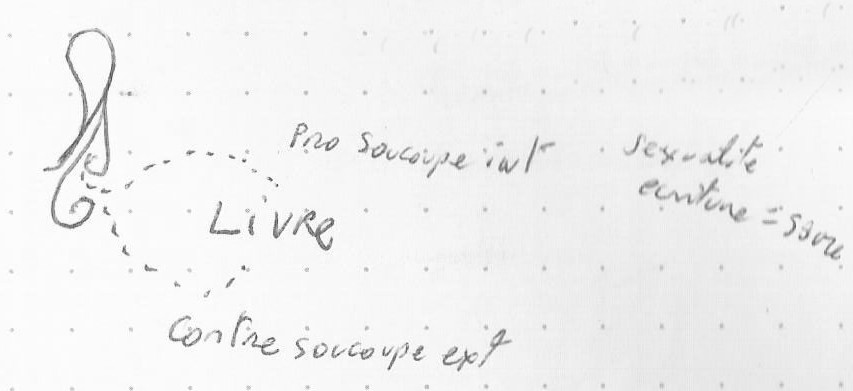 Pro soucoupe int
sexualité
ecriture =
LiVRe
Contre soucoupe ext